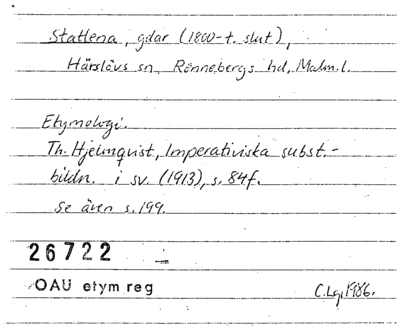 Stattena, gdar (1800-t. slut),
Härslövs sn, Rönnebergs hd, Malm. l.
Etymologi.
Th. Hjelmqvist, Imperativiska subst.-
bildn. i sv. (1913), s. 84f.
Se även s. 199.
26722
OAU etym reg
C.Lg. 1986.